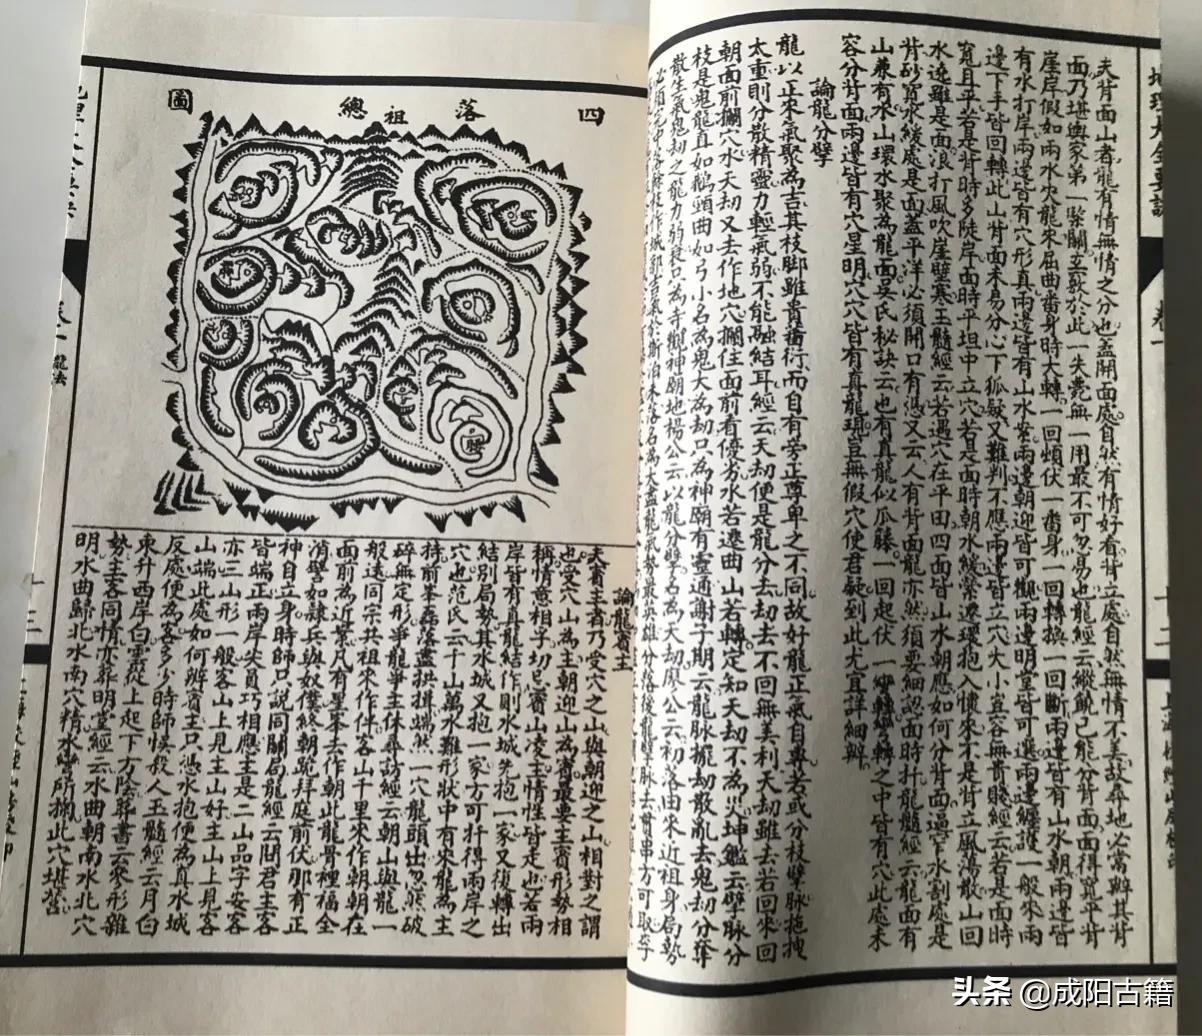 地理大全要訣
卷一
十二
夫背面山者龍有情無情之分也蓋開面處自然有情好看背立處自然無情不美故尋地必當辦其背
面乃堪輿家第一緊關立訣於此一失麂無一用最不可忽易也龍經云縱饒已能分背面面得寬平背
崖岸假如兩水夾龍來屈曲番身時大轉一回頓伏一番身一回轉換一回斷兩邊皆有山水朝兩邊皆
有水打岸兩邊皆有穴形真兩邊皆有山水案兩邊朝迎皆可觀兩邊明堂皆可選兩邊纏護一般來兩
邊下手皆回轉此山背面未易分心下狐疑又難判不應兩邊皆立穴大小宜容無貴賤經云若是面時
寬且平若是背時多陡岸面時平坦中立穴若是面時朝水緩縈遶環抱入懷來不是背立風蕩散山回
水遶雖是面浪打風吹崖壁寒玉髓經云若遇穴在平田四面皆山水朝應如何分背面邊窄水割處是
背砂寬水緩處是面蓋平洋必須開口有憑又云人有背面龍亦然須要細認面時扦龍髓經云龍面有
山兼有水山環水聚為龍面吳氏秘訣云也有真龍似瓜藤一回起伏一轡轉轡轉之中皆有穴此處未
容分背面兩邊皆有穴星明穴穴皆有真龍現豈無假穴使君疑到此尤宜詳細辨
論龍分擘
龍以正來氣聚為吉其枝脚雖貴蕃衍而自有旁正尊卑之不同故好龍正氣自專若或分枝擘脉拖拽
太重則分散精靈力輕氣弱不能融結耳經云天劫便是龍分去劫去不回無美利天劫雖去若回來回
朝面前攔穴水天劫又去作地穴攔住面前看優劣水若遶曲山若轉定知天劫不為災坤鑑云擘脉分
枝是鬼龍直如鵝頭曲如弓小名為鬼大為劫只為神廟有靈通謝子期云龍脉擺劫散亂去鬼劫分奪
散生氣鬼劫之龍力弱段只為寺觀神廟地楊公云以龍分擘名為天劫廖公云初落由來近祖身局勢
四落祖總圖
卷一 龍法
十三
論龍賓主
夫賓主者乃受穴之山與朝迎之山相對之謂
也受穴山為主朝迎山為賓最要主賓形勢相
稱情意相孚切忌賓山凌主情性皆走也若兩
岸皆有真龍結作則水城先抱一家又復轉出
結別局勢其水城又抱一家方可扦得兩岸之
穴也范氏云千山萬水難形狀中有來龍為主
持前峯磊落盡拱揖端然一穴龍頭出忽然破
碎無定形爭龍爭主休尋訪經云朝山與龍一
般遠同宗共祖來作伴客山千里來作朝朝在
面前為近案凡有星峯去作朝此龍骨裡福全
消譬如隸兵與奴僕終朝跪拜庭前伏那有正
神自立身時師只說同關局龍經云問君主客
皆端正兩岸尖員巧相應主是二山品字安客
亦三山形一般客山上見主山好主山上見客
山端此處如何辨賓主只憑水抱便為真水城
反處便為客多少時師悞殺人玉髓經云月自
東升西岸白雲從上起下方陰葬書云參形雜
勢主客同情亦葬明堂經云水曲朝南水北穴
明水曲歸北水南穴精水彎所掬此穴堪營
腰
头条 @成阳古籍